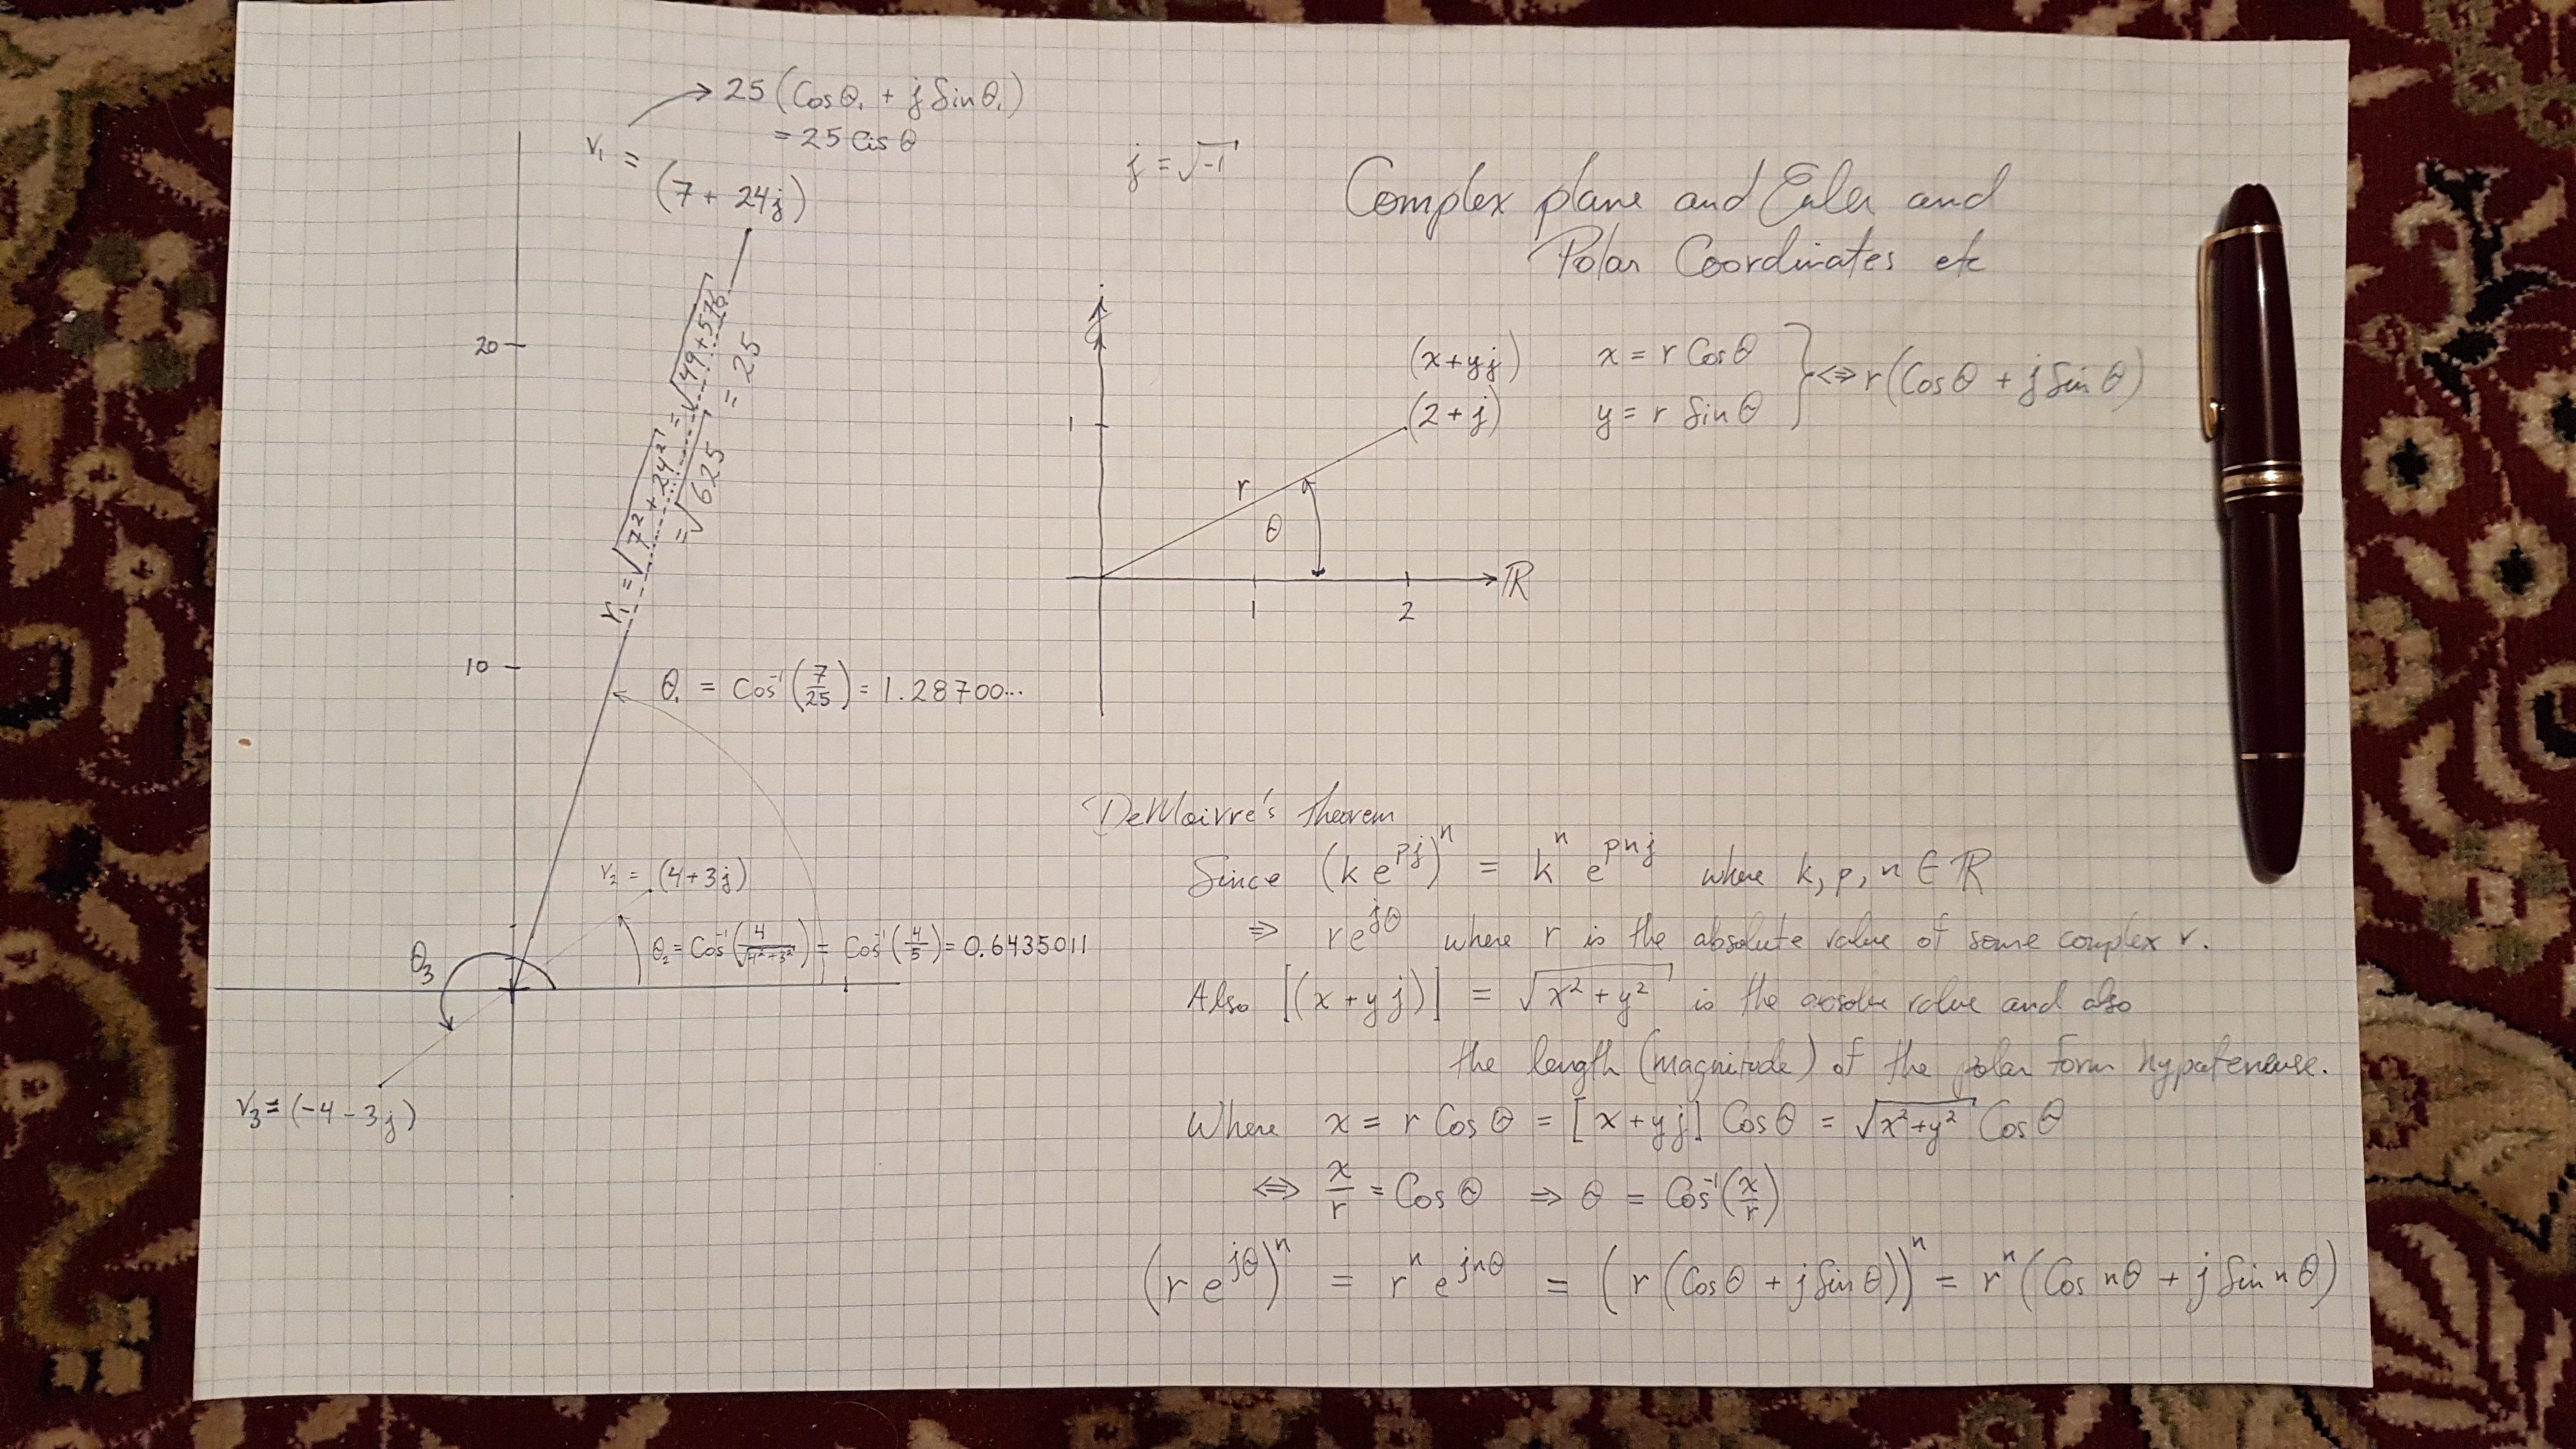 Complex plane and Euler and
Polar Coordinates etc
j = √-1
(x+yj)
(2+j)
x = r Cosθ
y = r Sinθ
} <=> r(Cosθ + j Sinθ)
j
1
r
θ
1
2
ℝ
→ 25(Cosθ₁ + j Sinθ₁)
= 25 Cis θ
v₁ = (7 + 24j)
20
10
r₁ = √(7² + 24²) = √(49+576)
= √625 = 25
θ₁ = Cos⁻¹(7/25) = 1.28700...
v₂ = (4+3j)
θ₂ = Cos⁻¹(4/√(4²+3²)) = Cos⁻¹(4/5) = 0.6435011
θ₃
v₃ = (-4 - 3j)
DeMoivre's Theorem
Since (k e^pj)^n = k^n e^pnj where k, p, n ∈ ℝ
⇒ r e^jθ where r is the absolute value of some complex v.
Also |(x+yj)| = √(x² + y²) is the absolute value and also
the length (magnitude) of the polar form hypotenuse.
Where x = r Cosθ = |x+yj| Cosθ = √(x²+y²) Cosθ
<=> x/r = Cosθ ⇒ θ = Cos⁻¹(x/r)
(r e^jθ)^n = r^n e^jnθ = (r(Cosθ + j Sinθ))^n = r^n(Cos nθ + j Sin nθ)